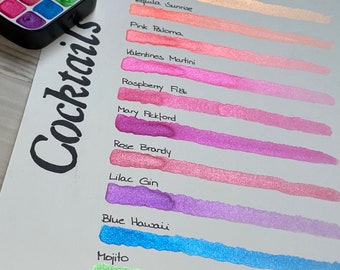 Tequila Sunrise
Pink Paloma
Valentines Martini
Raspberry Fizz
Mary Pickford
Rose Brandy
Lilac Gin
Blue Hawaii
Mojito
Cocktails